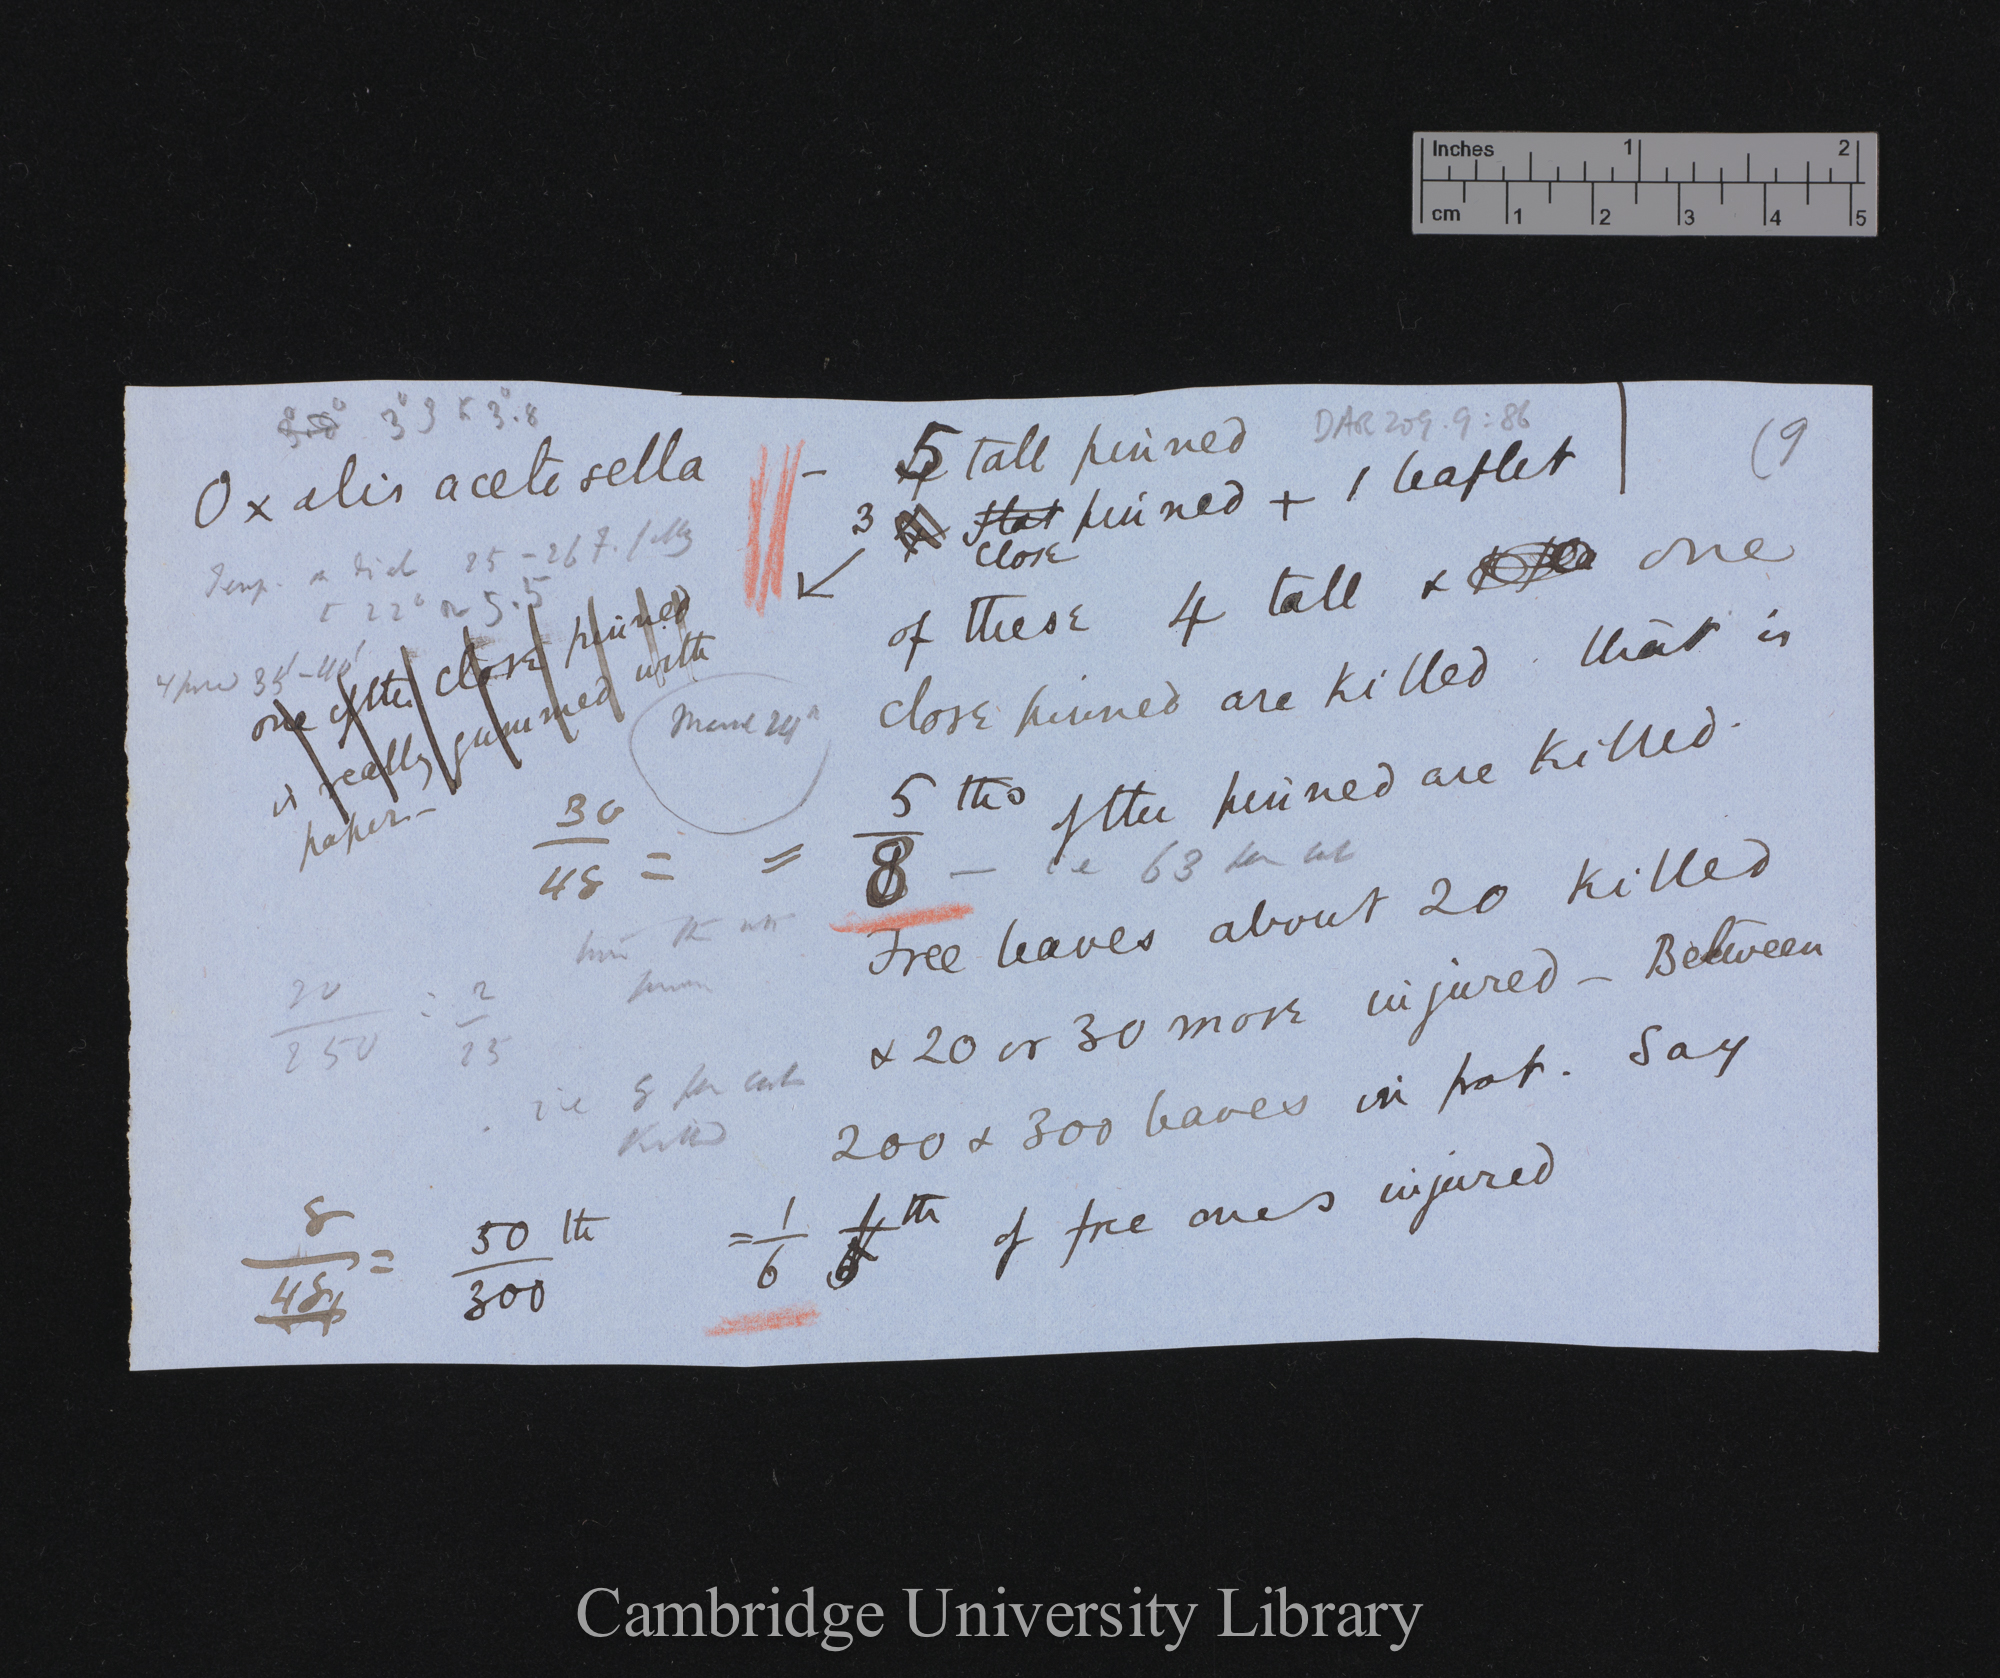 Inches 1 2
cm 1 2 3 4 5
3° 3 to 3°.8
DAR 209.9:86
(9
Oxalis acetosella
– 5 tall pinned
3 flat close pinned + 1 leaflet
Temp. 25 – 26 F.
22° 5.5
35' – 40'
one of the close pinned
is really gummed with
paper –
March 24th
of these 4 tall & one
close pinned are killed. that is
30/48 = = 5/8 ths of the pinned are killed.
– i e 63 per cent
Free leaves about 20 killed
& 20 or 30 more injured – Between
200 & 300 leaves in pot. Say
20/250 : 2/25
i e 8 per cent
killed
8/48 = 50/300 th = 1/6 th of free ones injured
Cambridge University Library